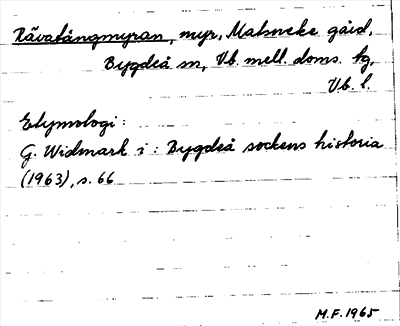 Rävatångmyran, myr, Malsneke gård,
Bygdeå sn, Vb. mell. doms. tg,
Vb. l.
Etymologi:
G. Widmark i: Bygdeå sockens historia
(1963), s. 66
M.F. 1965